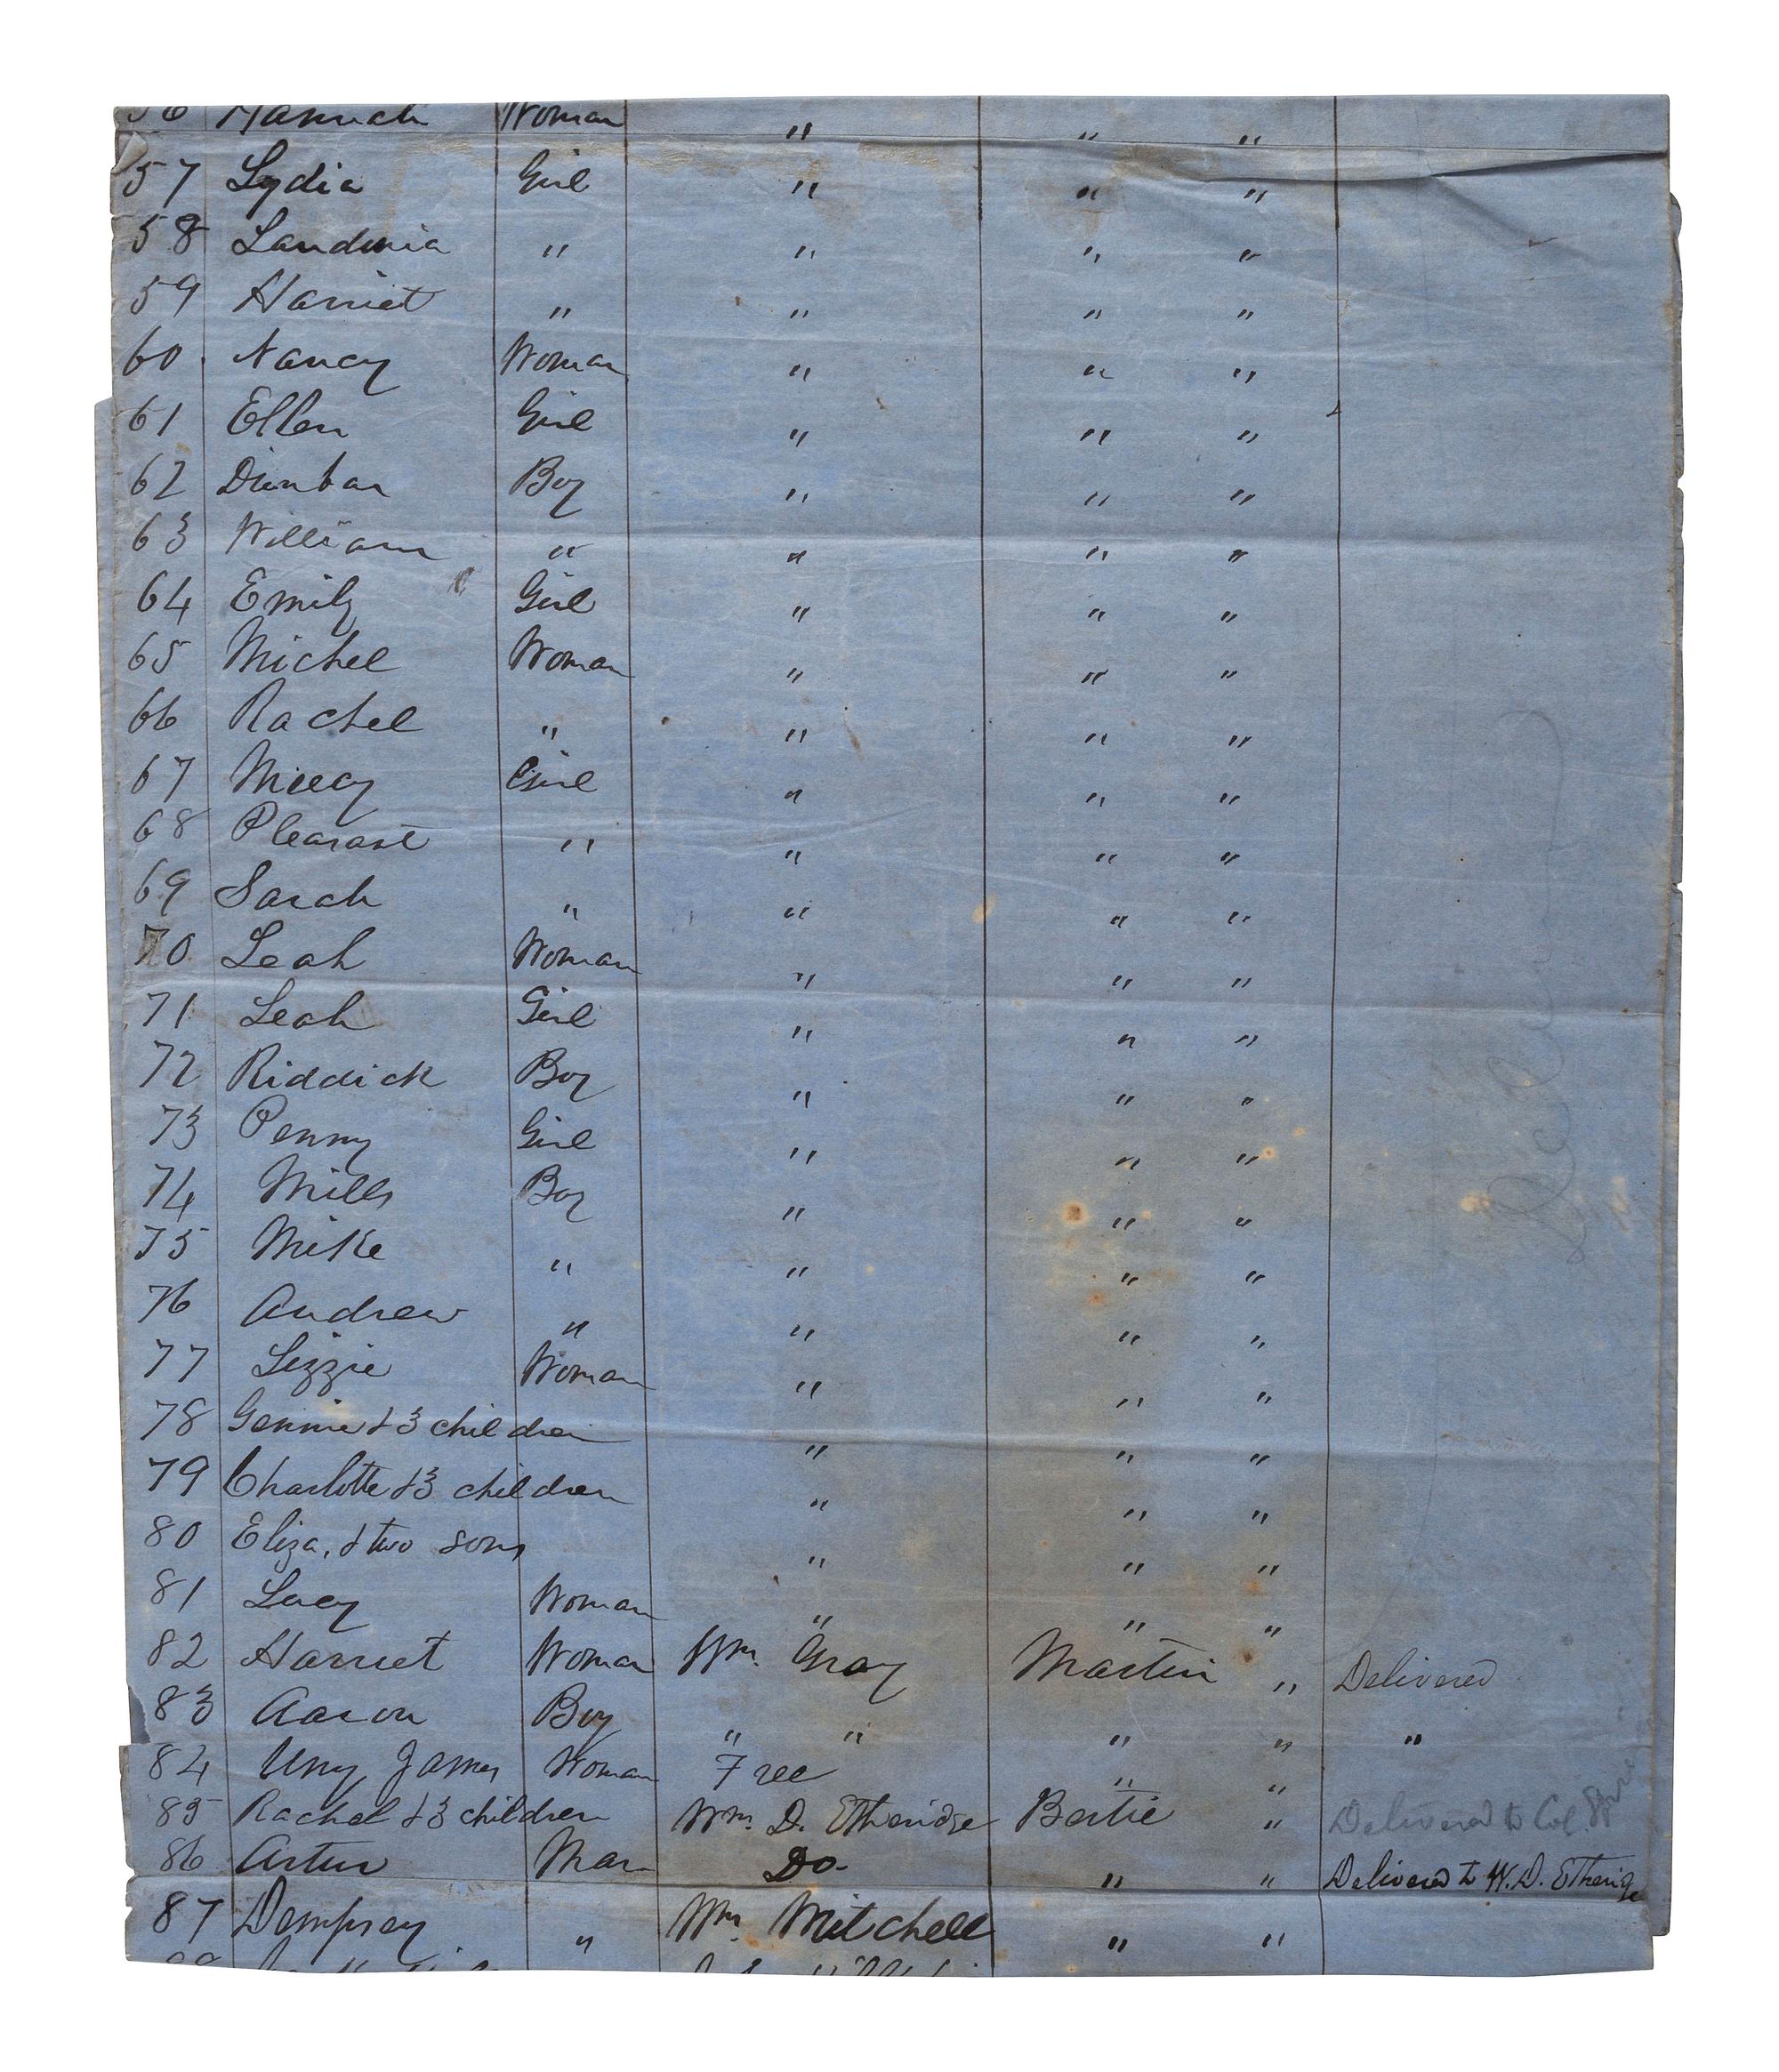 56 Hannah Woman " " "
57 Lydia Girl " " "
58 " " " "
59 Harriet " " " "
60 Nancy Woman " " "
61 Ellen Girl " " "
62 Dunbar Boy " " "
63 William " " " "
64 Emily Girl " " "
65 Michel Woman " " "
66 Rachel " " " "
67 Girl " " "
68 Pleasant " " " "
69 Sarah " " " "
70 Leah Woman " " "
71 Leah Girl " " "
72 Riddick Boy " " "
73 Penny Girl " " "
74 Mills Boy " " "
75 Mike " " " "
76 Andrew " " " "
77 Lizzie Woman " " "
78 Gennie & 3 children " " "
79 Charlotte & 3 children " " "
80 Eliza, & two sons " " "
81 Lucy Woman " " "
82 Harriet Woman Wm. Gray Martin " Delivered
83 Aaron Boy " " " " "
84 James Woman Free " "
85 Rachel & 3 children Wm. D. Etheridge Bertie " Delivered to Col.
86 Artur Man Do. " " Delivered to W. D. Etherige
87 Dempsey " Wm Mitchell " "